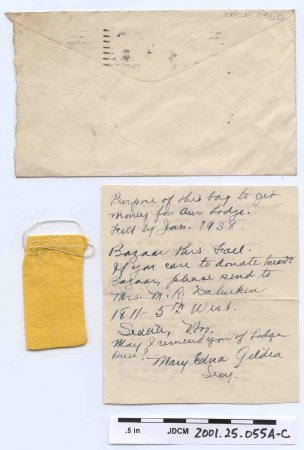 2001.25.055b
Purpose of this bag to get
money for our Lodge.
Full by Jan. 1938.
Bazaar this Fall.
If you care to donate toward
Bazaar, please send to
Mrs. M. R.
1811- 5th West.
Seattle, Wn.
May I remind you of Lodge
Dues? - Mary Edna Gildea
Secy.
.5 in JDCM 2001.25.055A-C